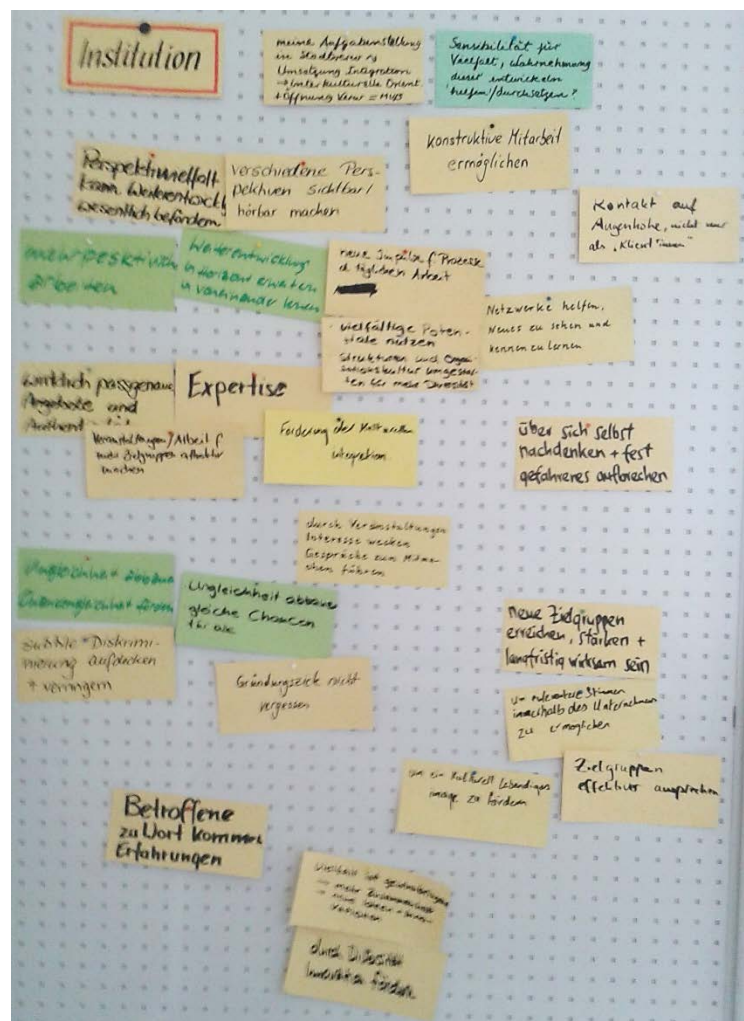 Institution
meine Aufgabenstellung
in Stadtverw.
Umsetzung Integration
→ interkulturelle Orient.
+ Öffnung Verw =
Sensibilität für
Vielfalt, Wahrnehmung
dieser entwickeln
helfen/durchsetzen?
konstruktive Mitarbeit
ermöglichen
Perspektivvielfalt
kann Weiterentwickl
wesentlich befördern
verschiedene Pers-
pektiven sichtbar/
hörbar machen
Kontakt auf
Augenhöhe, nicht nur
als "Klient*innen"
mehrperspektivisch
arbeiten
Weiterentwicklung
Horizont erweitern
voneinander lernen
neue Impulse f. Prozesse
d. täglichen Arbeit
vielfältige Poten-
tiale nutzen
Strukturen und Organi-
sationskultur umgestal-
ten für mehr Diversität
Netzwerke helfen,
Neues zu sehen und
kennen zu lernen
wirklich passgenaue
Angebote und
Expertise
Veranstaltungen / Arbeit f
mehr Zielgruppen
machen
Förderung der kulturellen
integration
über sich selbst
nachdenken + fest
gefahrenes aufbrechen
durch Veranstaltungen
Interesse wecken
Gespräche zum Mitma-
chen führen
Ungleichheit abbauen
Chancengleichheit fördern
Ungleichheit abbauen
gleiche Chancen
für alle
subtile Diskrimi-
nierung aufdecken
+ verringern
Gründungsziele nicht
vergessen
neue Zielgruppen
erreichen, stärken +
langfristig wirksam sein
um relevante Stimmen
innerhalb des Unternehmens
zu ermöglichen
um ein kulturell lebendiges
image zu fördern
Zielgruppen
effektiver ansprechen
Betroffene
zu Wort kommen
Erfahrungen
Vielfalt ist gewinnbringend
→ mehr
→ neue Ideen +
durch Diversität
Innovation fördern